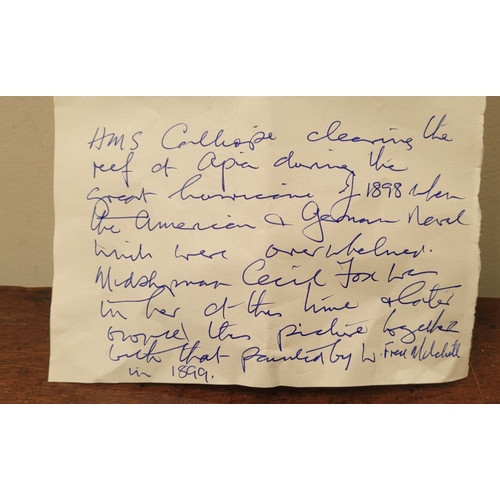 HMS Calliope clearing the
reef at Apia during the
great hurricane of 1898 when
the American & German Naval
units were overwhelmed.
Midshipman Cecil Fox was
in her at this time & later
owned this picture together
with that painted by W. Fred Mitchell
in 1899.